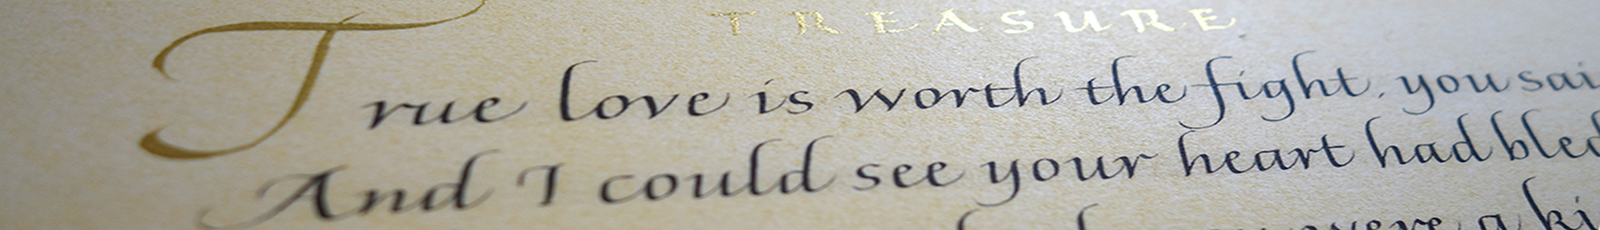 TREASURE
True love is worth the fight, you sai
And I could see your heart had bled
were a ki